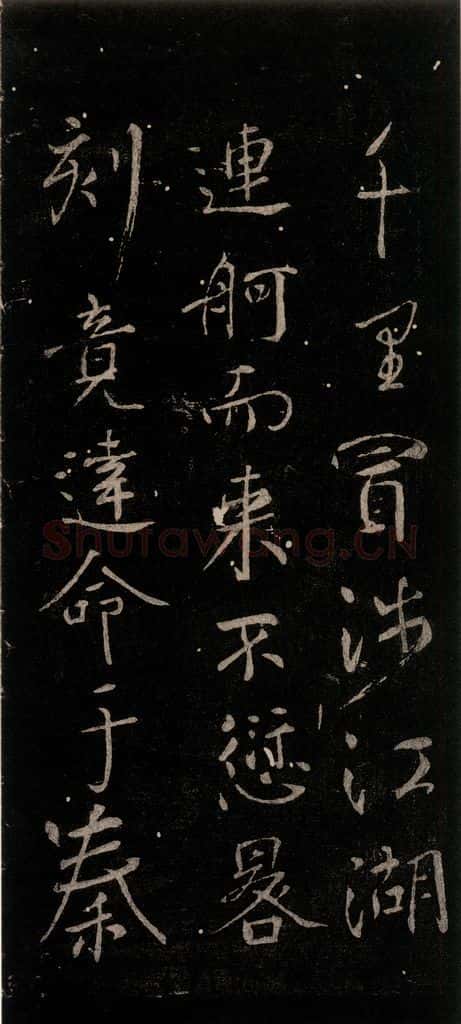 千里冒涉江湖
連舸而来不愆晷
刻竟達命于秦
Shufawang.CN